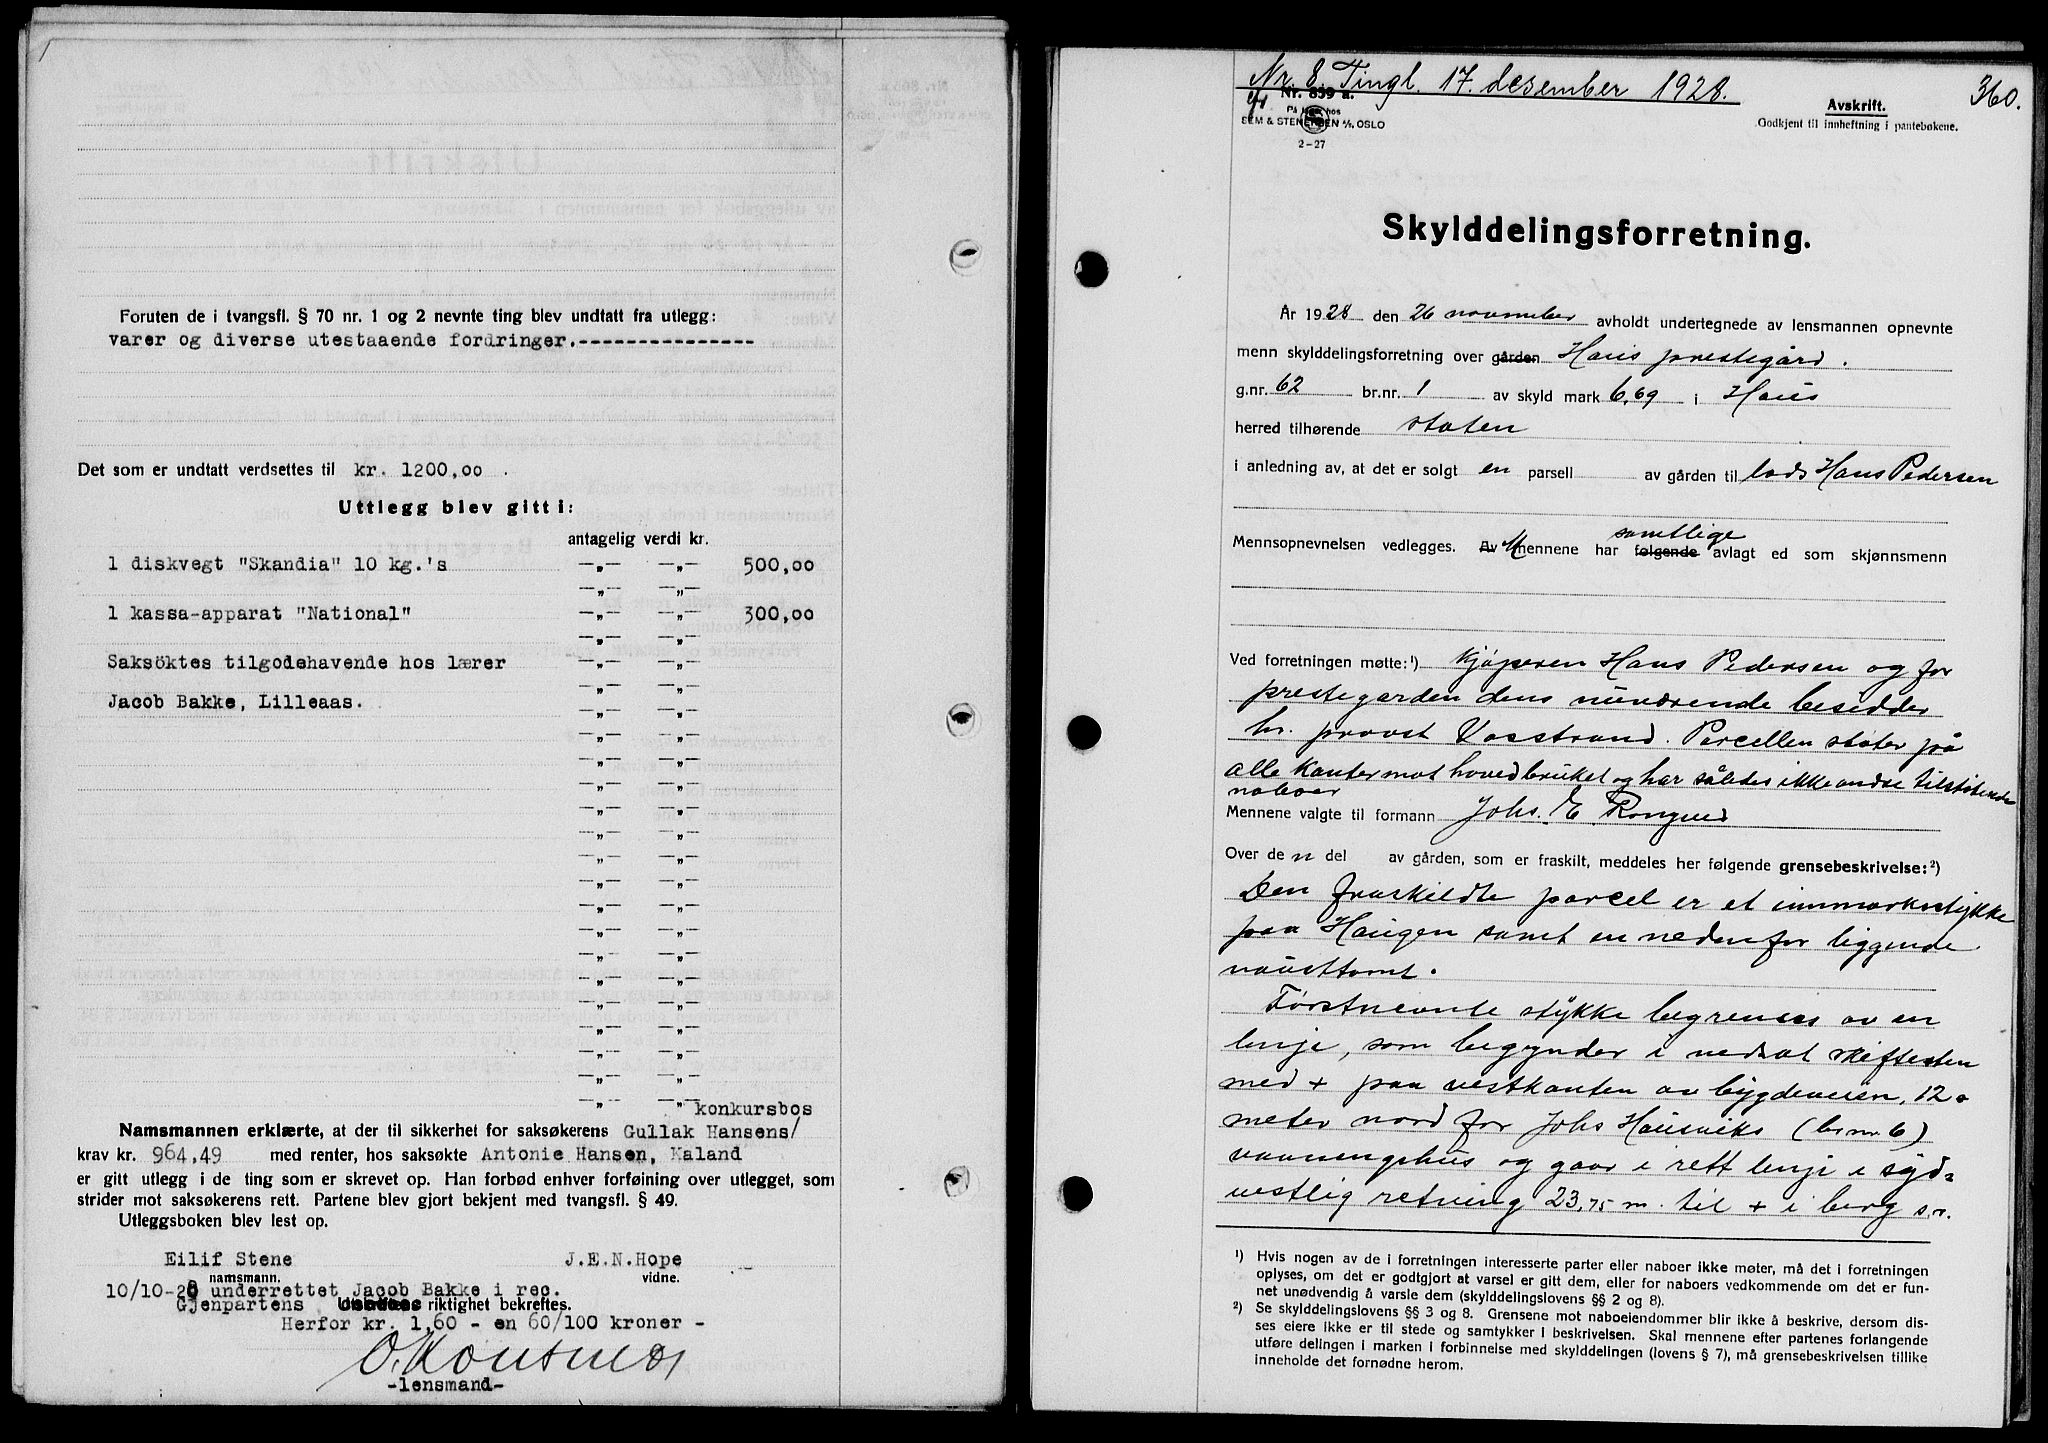 Foruten de i tvangsfl. § 70 nr. 1 og 2 nevnte ting blev undtatt fra utlegg:
varer og diverse utestaaende fordringer.----------------
Det som er undtatt verdsettes til kr. 1200,00 .
Uttlegg blev gitt i:
antagelig verdi kr.
1 diskvegt "Skandia" 10 kg.'s —„— —„— 500,00
1 kassa-apparat "National" —„— —„— 300,00
Saksöktes tilgodehavende hos lærer —„— —„—
Jacob Bakke, Lilleaas. —„— —„—
konkursbos
Namsmannen erklærte, at der til sikkerhet for saksøkerens Gullak Hansens/
krav kr. 964,49 med renter, hos saksøkte Antonie Hansen, Kaland
er gitt utlegg i de ting som er skrevet op. Han forbød enhver forføining over utlegget, som
strider mot saksøkerens rett. Partene blev gjort bekjent med tvangsfl. § 49.
Utleggsboken blev lest op.
Eilif Stene J.E.N.Hope
namsmann. vidne.
10/10-28 underrettet Jacob Bakke i rec.
Gjenpartens riktighet bekreftes.
Herfor kr. 1,60 - en 60/100 kroner -
-lensmand-
Nr. 8. Tingl. 17. desember 1928. 360.
Nr. 839 a.
På lager hos
SEM & STENERSEN A/S, OSLO
2-27
Avskrift.
Godkjent til innheftning i pantebøkene.
Skylddelingsforretning.
År 1928 den 26 november avholdt undertegnede av lensmannen opnevnte
menn skylddelingsforretning over gården Haus prestegård.
g.nr. 62 br.nr. 1 av skyld mark 6,69 i Haus
herred tilhørende staten
i anledning av, at det er solgt en parsell av gården til lods Hans Pedersen
samtlige
Mennsopnevnelsen vedlegges. Av Mennene har følgende avlagt ed som skjønnsmenn
Ved forretningen møtte:¹) kjøperen Hans Pedersen og for
prestegarden dens nuværende besidder
hr. provst Vasstrand. Parcellen støter på
alle kanter mot hovedbruket og har således ikke andre tilstøtende
naboer
Mennene valgte til formann Johs. E
Over de n del av gården, som er fraskilt, meddeles her følgende grensebeskrivelse:²)
Den fraskildte parcel er et innmarksstykke
paa Haugen samt en nedenfor liggende
nausttomt.
Førstnevnte stykke begrenses av en
linje, som begynder i nedsat skiftesten
med + paa vestkanten av bygdeveien, 12
meter nord for Johs Hausviks (br.nr. 6)
vaaningshus og gaar i rett linje i syd-
vestlig retning 23,75 m. til + i berg
¹) Hvis nogen av de i forretningen interesserte parter eller naboer ikke møter, må det i forretningen
oplyses, om det er godtgjort at varsel er gitt dem, eller for naboers vedkommende om det er fun-
net unødvendig å varsle dem (skylddelingslovens §§ 2 og 8).
²) Se skylddelingslovens §§ 3 og 8. Grensene mot naboeiendommer blir ikke å beskrive, dersom dis-
ses eiere ikke er til stede og samtykker i beskrivelsen. Skal mennene efter partenes forlangende
utføre delingen i marken i forbinnelse med skylddelingen (lovens § 7), må grensebeskrivelsen tillike
inneholde det fornødne herom.